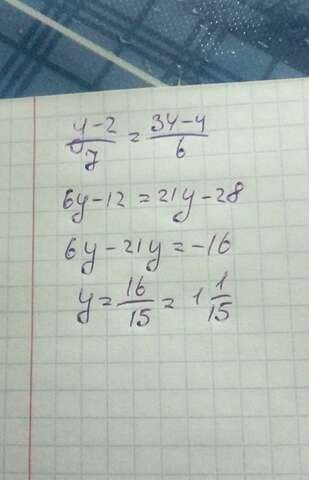 y-2/7 = 3y-4/6
6y-12=21y-28
6y-21y=-16
y=16/15=1 1/15